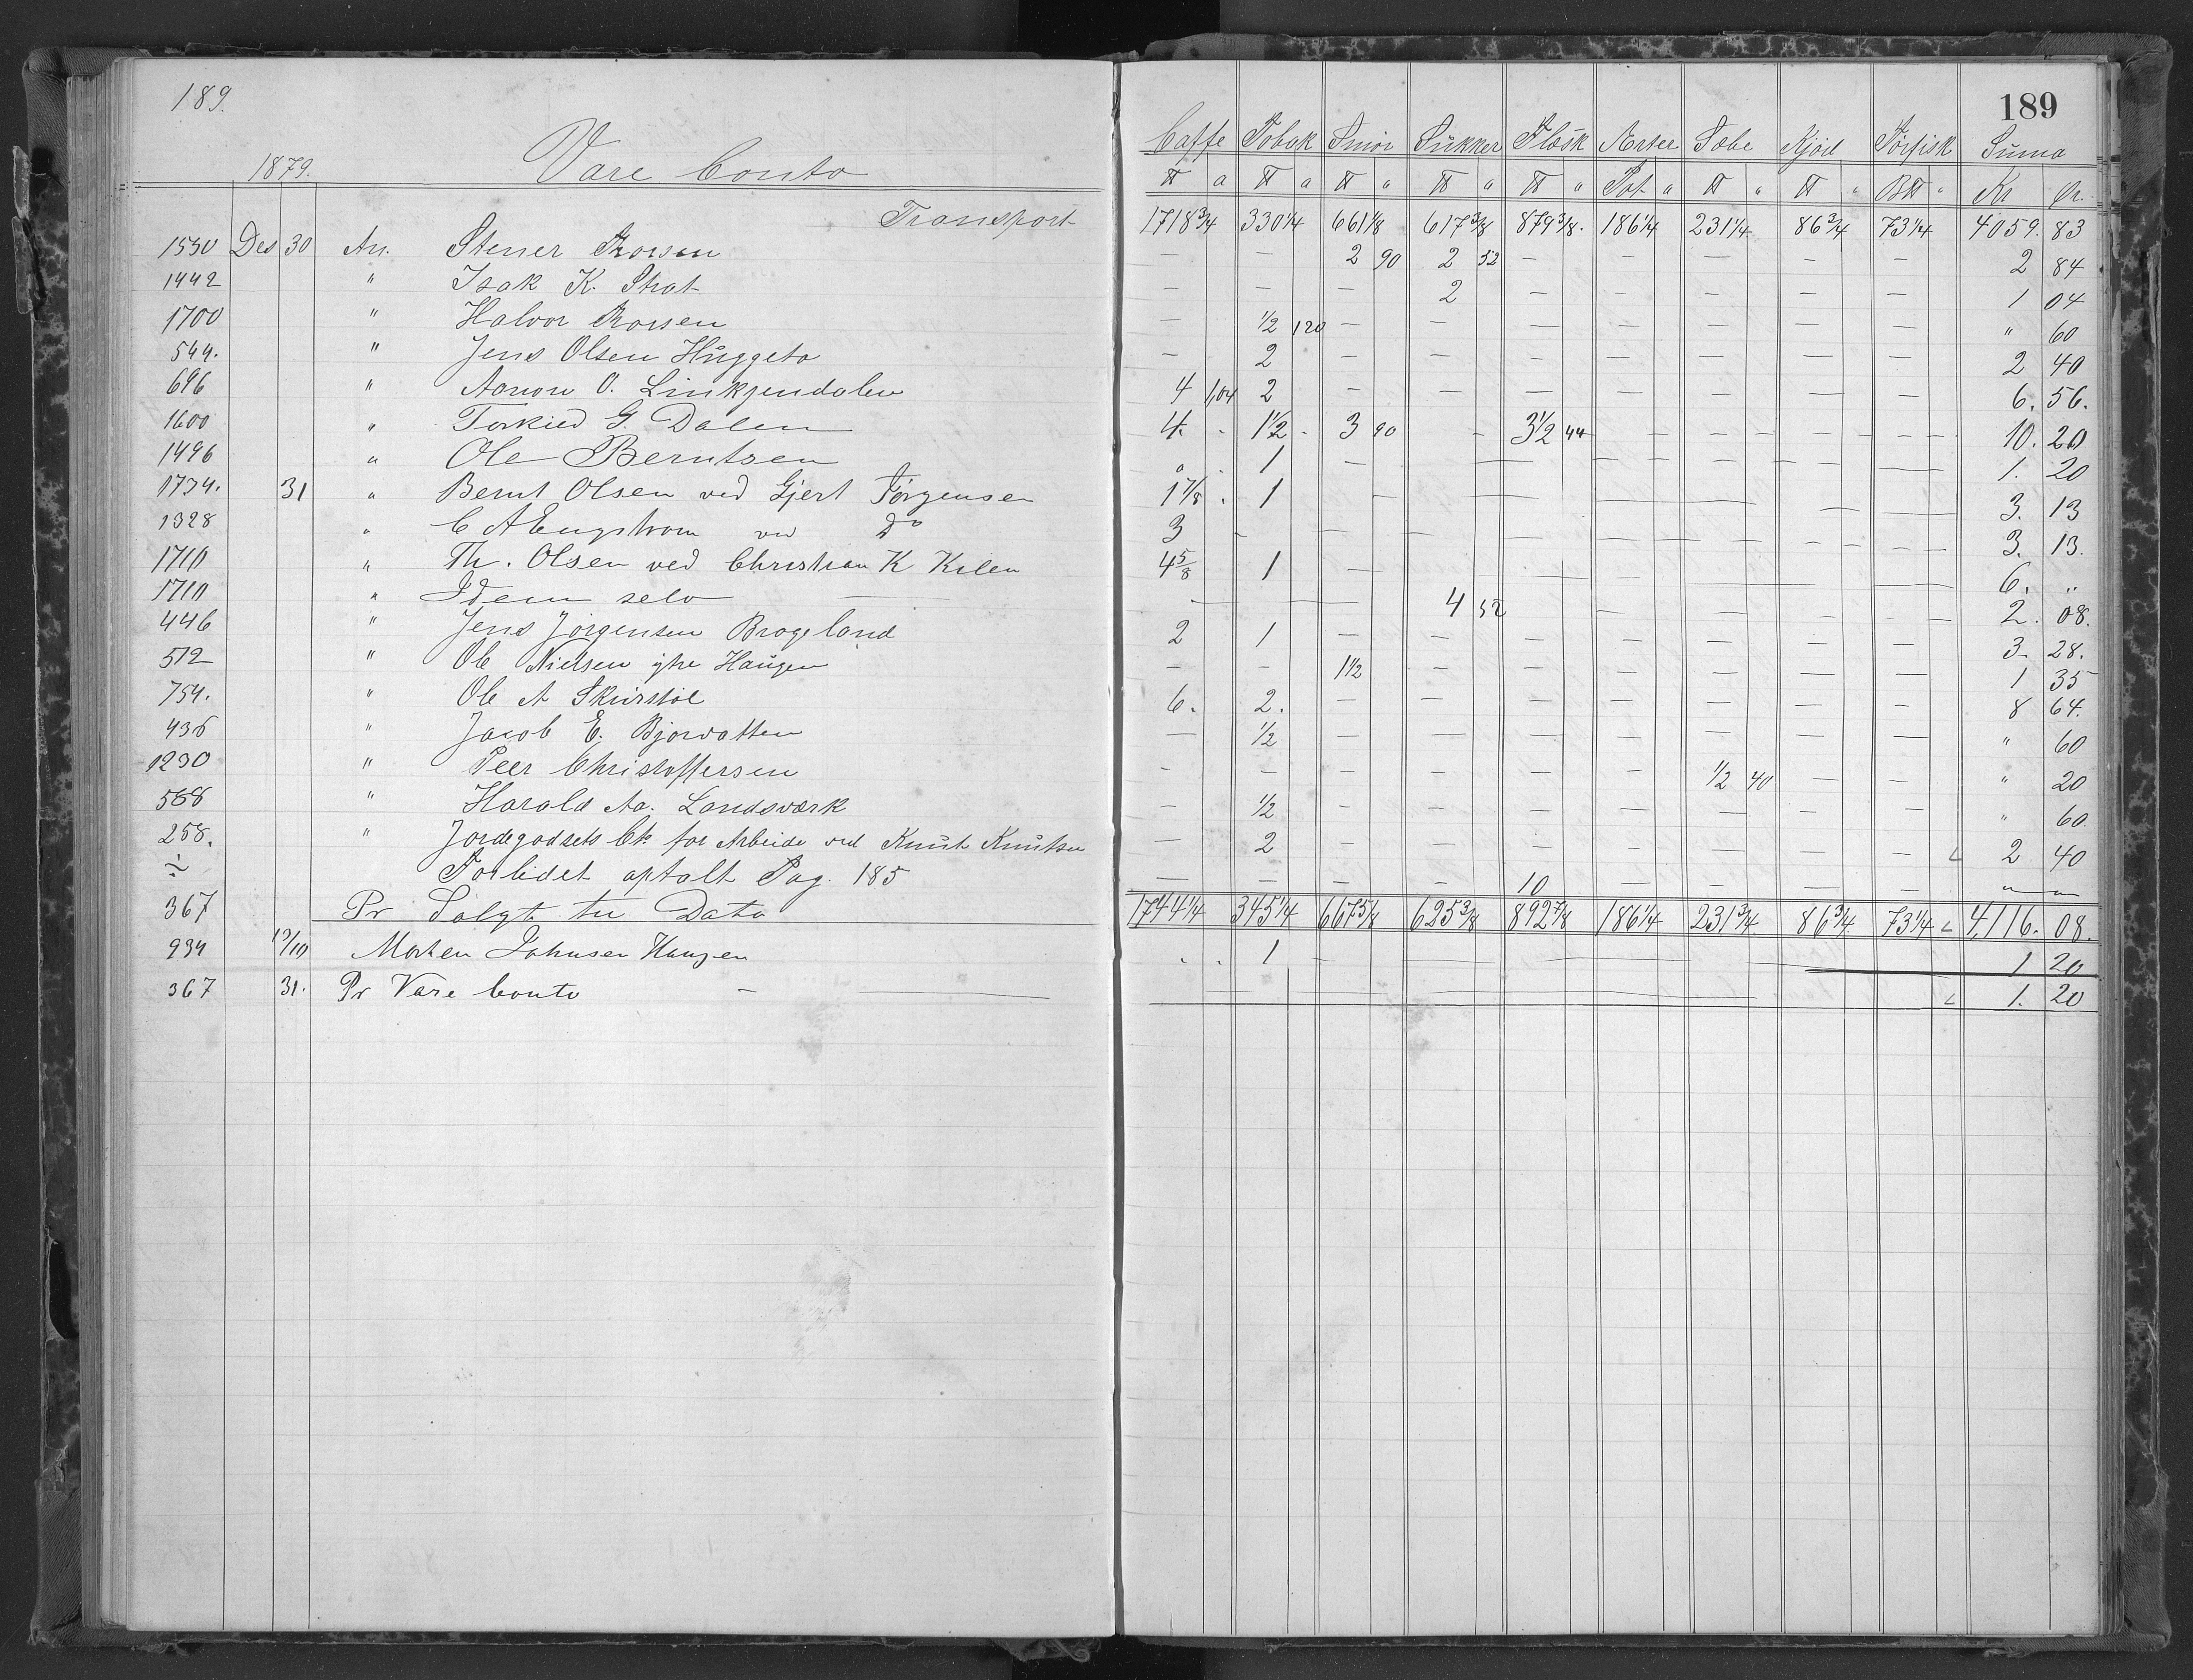 189.
1879. Vare Conto
Caffe Tobak Smör Sukker Flæsk Ærter Sæbe Kjöd Törfisk Suma 189
℔ a ℔ a ℔ " ℔ " ℔ " Pot. " ℔ " ℔ " B℔ " Kr Ør.
Transport 1718 3/4 330 1/4 661 1/8 617 3/8 879 3/8 186 1/4 231 1/4 86 3/4 73 1/4 4059. 83
1530 Des 30 An. Stener — — 2 90 2 52 — — — — — 2 84
1442 " Isak K. Strat — — — 2 — — — — — 1 04
1700 " Halvor — 1/2 120 — — — — — — — " 60
544. " Jens Olsen Huggeto — 2 — — — — — — — 2 40
696 " Aanon O. Linkjendalen 4 1,04 2 — — — — — — — 6. 56.
1600 " G. Dalen 4. 1 1/2 3 90 — 3 1/2 44 — — — — 10. 20
1496 " Ole Berntsen 1 — — — — — — — 1. 20
1734. 31 " Bernt Olsen ved Gjert Jörgensen 1 7/8 1 — — — — — — — 3. 13
1328 " C A Engstrom ved do 3 — — — — — — — — 3. 13.
1710 " Th. Olsen ved Christian K Kilen 4 5/8 1 — — — — — — — 6. "
1710 " Idem selv — — — 4 52 — — — — 2. 08.
446 " Jens Jörgensen Brogeland 2 1 — — — — — — — 3. 28.
512 " Ole Nielsen yhe Haugen — — 1 1/2 — — — — — — 1 35
754. " Ole A Skurstöl 6. 2. — — — — — — — 8 64.
436 " Jacob E. Bjorvatten — 1/2 — — — — — — — " 60
1230 " Peer Christoffersen — — — — — — 1/2 40 — — " 20
568 " Harald Aa. Landsværk — 1/2 — — — — — — — " 60.
258. " Jordegodsets Cto for Arbeide ved Knut Knutsen — 2 — — — — — — — 2 40
÷ Forlidet optalt Pag. 185 — — — — 10 — — — — " "
367 Pr Solgt til Dato 1744 1/4 345 1/4 667 5/8 625 3/8 892 7/8 186 1/4 231 3/4 86 3/4 73 1/4 4,116. 08.
934 13/10 Morten Johnsen Haugen . . 1 — — — — 1 20
367 31. Pr Vare Conto — 1. 20